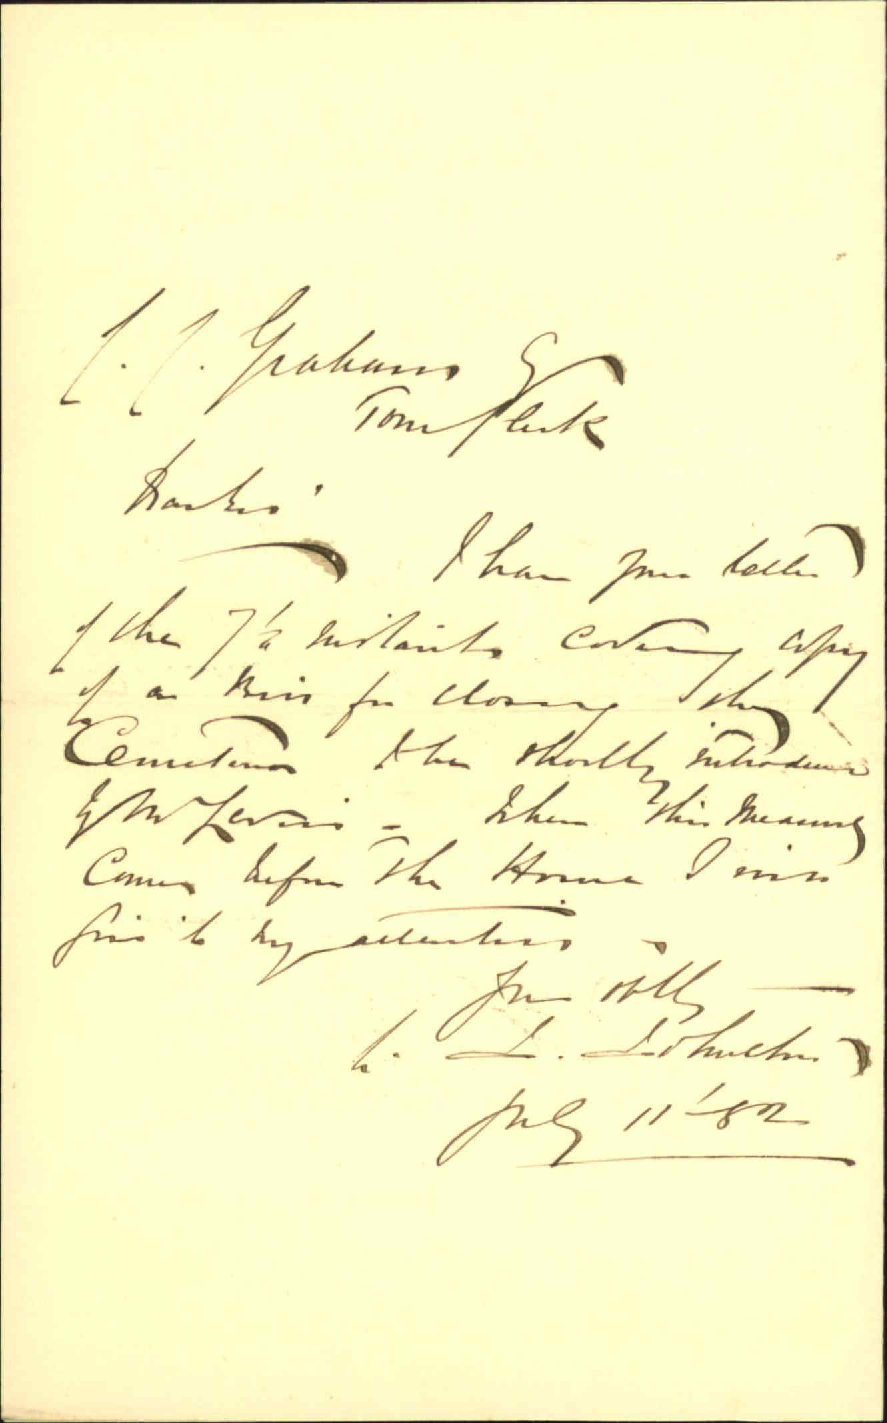 C. C. Graham Esq
Town Clerk
Dear Sir
I have your letter
of the 7th instant covering copy
of a Bill for closing the
Cemeteries to be shortly introduced
by Mr Levin - When this measure
comes before the House I will
give it my attention -
Your obtly
C. J. Johnston
July 11 - 82